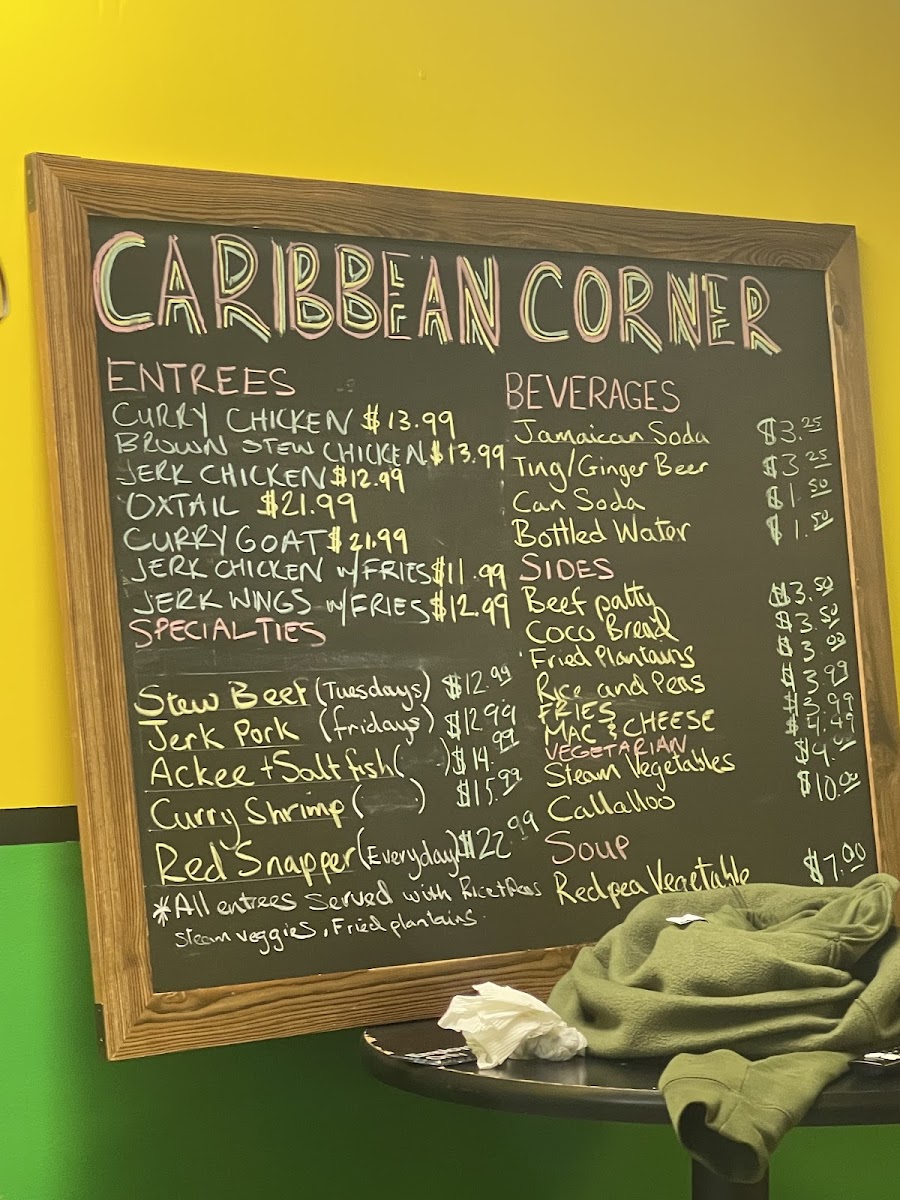 CARIBBEAN CORNER
ENTREES
CURRY CHICKEN $13.99
BROWN STEW CHICKEN $13.99
JERK CHICKEN $12.99
OXTAIL $21.99
CURRY GOAT $21.99
JERK CHICKEN w/FRIES $11.99
JERK WINGS w/FRIES $12.99
SPECIALTIES
Stew Beef (Tuesdays) $12.99
Jerk Pork (fridays) $12.99
Ackee + Salt fish ( ) $14.99
Curry Shrimp ( ) $15.99
Red Snapper (Everyday) $22.99
*All entrees Served with Rice+Peas
Steam veggies, Fried plantains.
BEVERAGES
Jamaican Soda $3.25
Ting/Ginger Beer $3.25
Can Soda $1.50
Bottled Water $1.50
SIDES
Beef patty $3.50
Coco Bread $3.50
Fried Plantains
Rice and Peas $3.99
FRIES $3.99
MAC & CHEESE $4.49
VEGETARIAN
Steam Vegetables
Callalloo $10.00
Soup
Redpea Vegetable $7.00